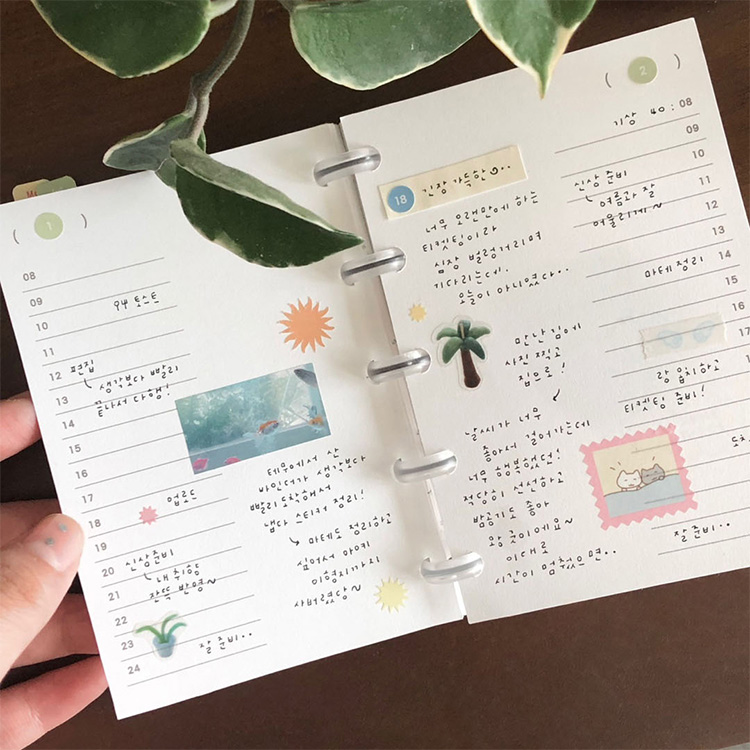 ( 1 )
08
09
94 토스트
10
11
12 편집
생각보다 빨리
13
끝나서 다행!
14
15
16
17
업로드
18
19
20 신상준비
내 취향
21 잔뜩 반영~
22
23 잘 준비..
24
테무에서 산
바인더가 생각보다
빨리 도착해서
냅다 스티커 정리!
마테도 정리하고
싶어서 아예
이형지까지
사버렸당~
( 2 )
기상 40 : 08
09
10
신상 준비
11
여름과 잘
12
어울리게~
13
마테 정리 14
15
16
17
랑 합치하고
티켓팅 준비!
잘 준비..
18 긴장 가득한..
너무 오랜만에 하는
티켓팅이라
심장 벌렁거리며
기다리는데.
오늘이 아니였다..
만난 김에
사진 찍고
집으로!
날씨가 너무
좋아서 걸어가는데
너무 행복했던!
적당히 선선하고
밤공기도 좋아
왕굿이에요~
이대로
시간이 멈췄으면..